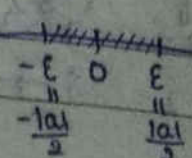 -ε 0 ε
= =
-|a|/2 |a|/2